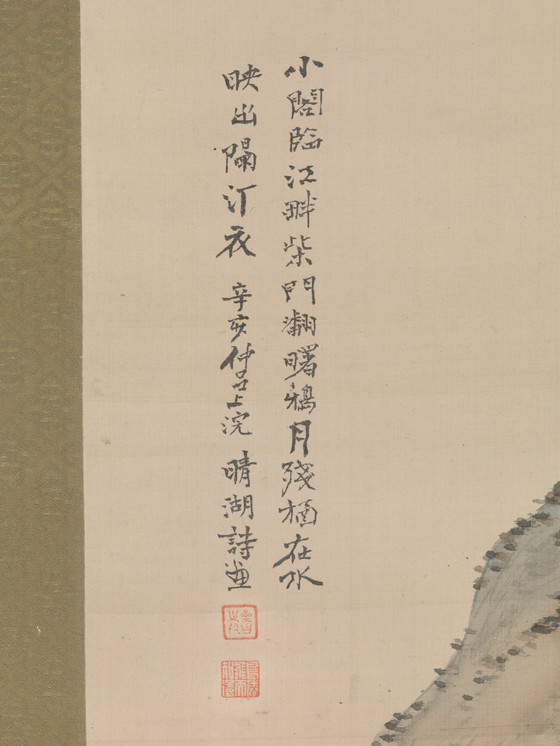 小閣臨江畔柴門翻曙鴉月殘猶在水
映出隔汀衣 辛亥仲呂上浣 晴湖詩畫